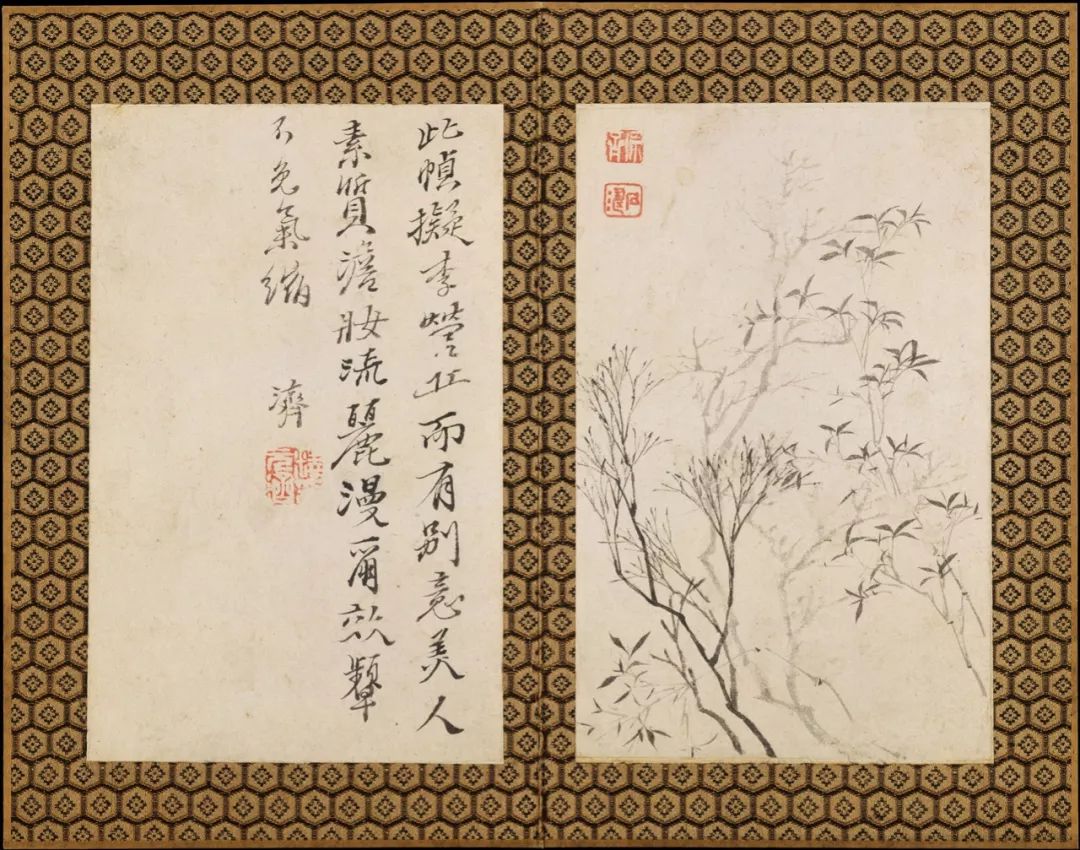 此幀擬李營丘而有别意美人
素質澹妝流麗漫爾效顰
不免氣縮
濟